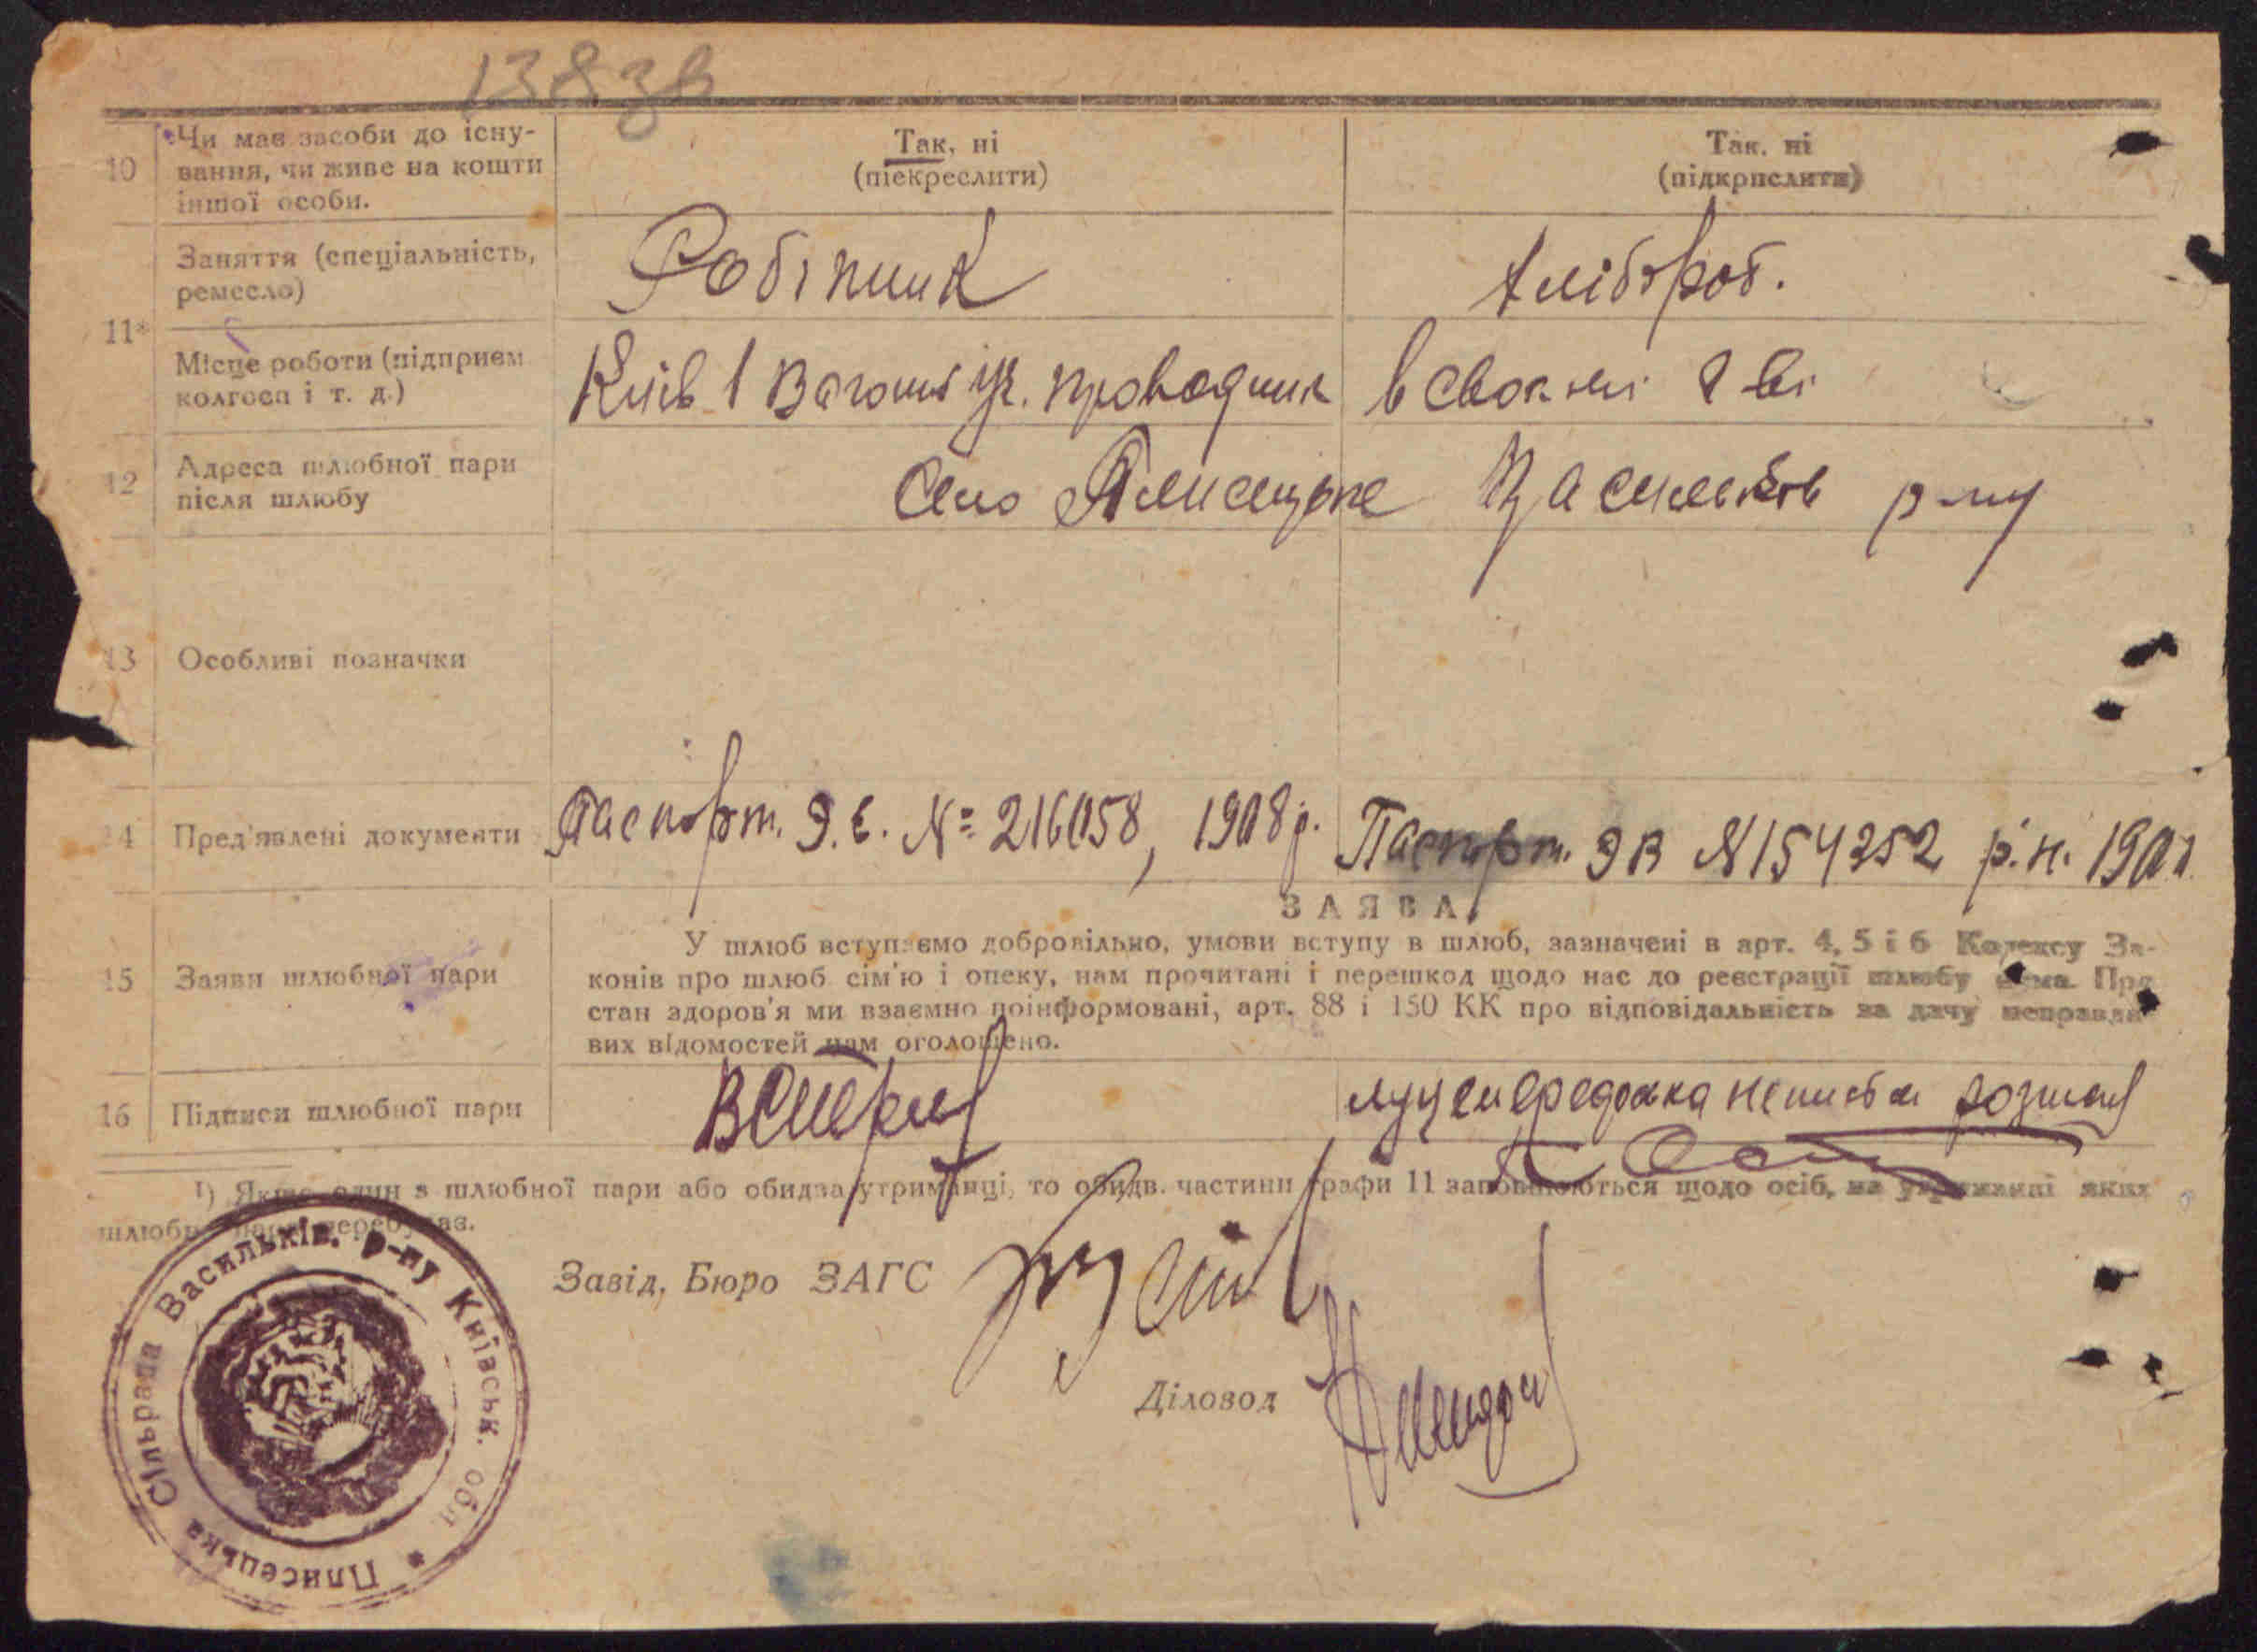 138 зв
10 Чи має засоби до існу-
вання, чи живе на кошти
іншої особи.
Так, ні
(піекреслити)
Так. ні
(підкрпслити)
11*
Заняття (спеціальність,
ремесло)
Робітник
хлібороб.
Місце роботи (підприєм
колгосп і т. д.)
Київ 1 Вагон уч. проводник
в своєму
12 Адреса шлюбної пари
після шлюбу
Село Плисецьке Васильків р-ну
13 Особливі позначки
14 Пред'явлені документи
Паспорт. Э.Є. № 216058, 1908 р.
Паспорт. ЭВ N 154252 р.н. 1901
ЗАЯВА
15 Заяви шлюбної пари
У шлюб вступаємо добровільно, умови вступу в шлюб, зазначені в арт. 4, 5 і 6 Кодексу За-
конів про шлюб сім'ю і опеку, нам прочитані і перешкод щодо нас до реєстрації шлюбу нема. Про
стан здоров'я ми взаємно поінформовані, арт. 88 і 150 КК про відповідальність за дачу неправди
вих відомостей нам оголошено.
16 Підписи шлюбної пари
¹) Якщо один з шлюбної пари або обидва утриманці, то обидв. частини графи 11 заповнюються щодо осіб, на утриманні яких
шлюбна пара перебуває.
Завід, Бюро ЗАГС
Діловод
Плисецька Сільрада Васильків. р-ну Київськ. обл. *